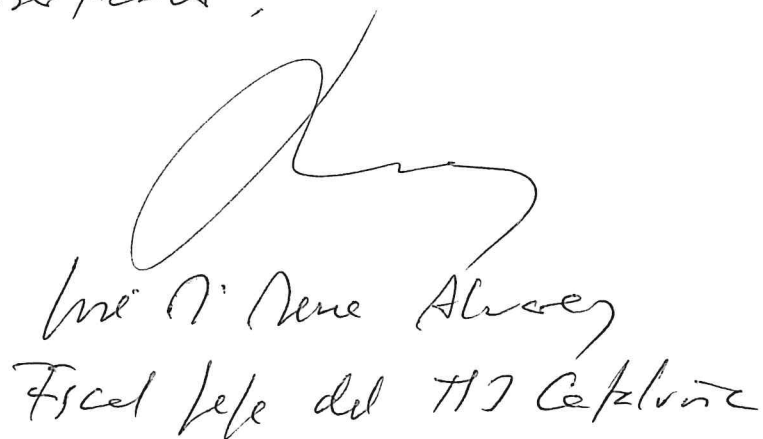 José Mª Mena Alvarez
Fiscal Jefe del TSJ Cataluña